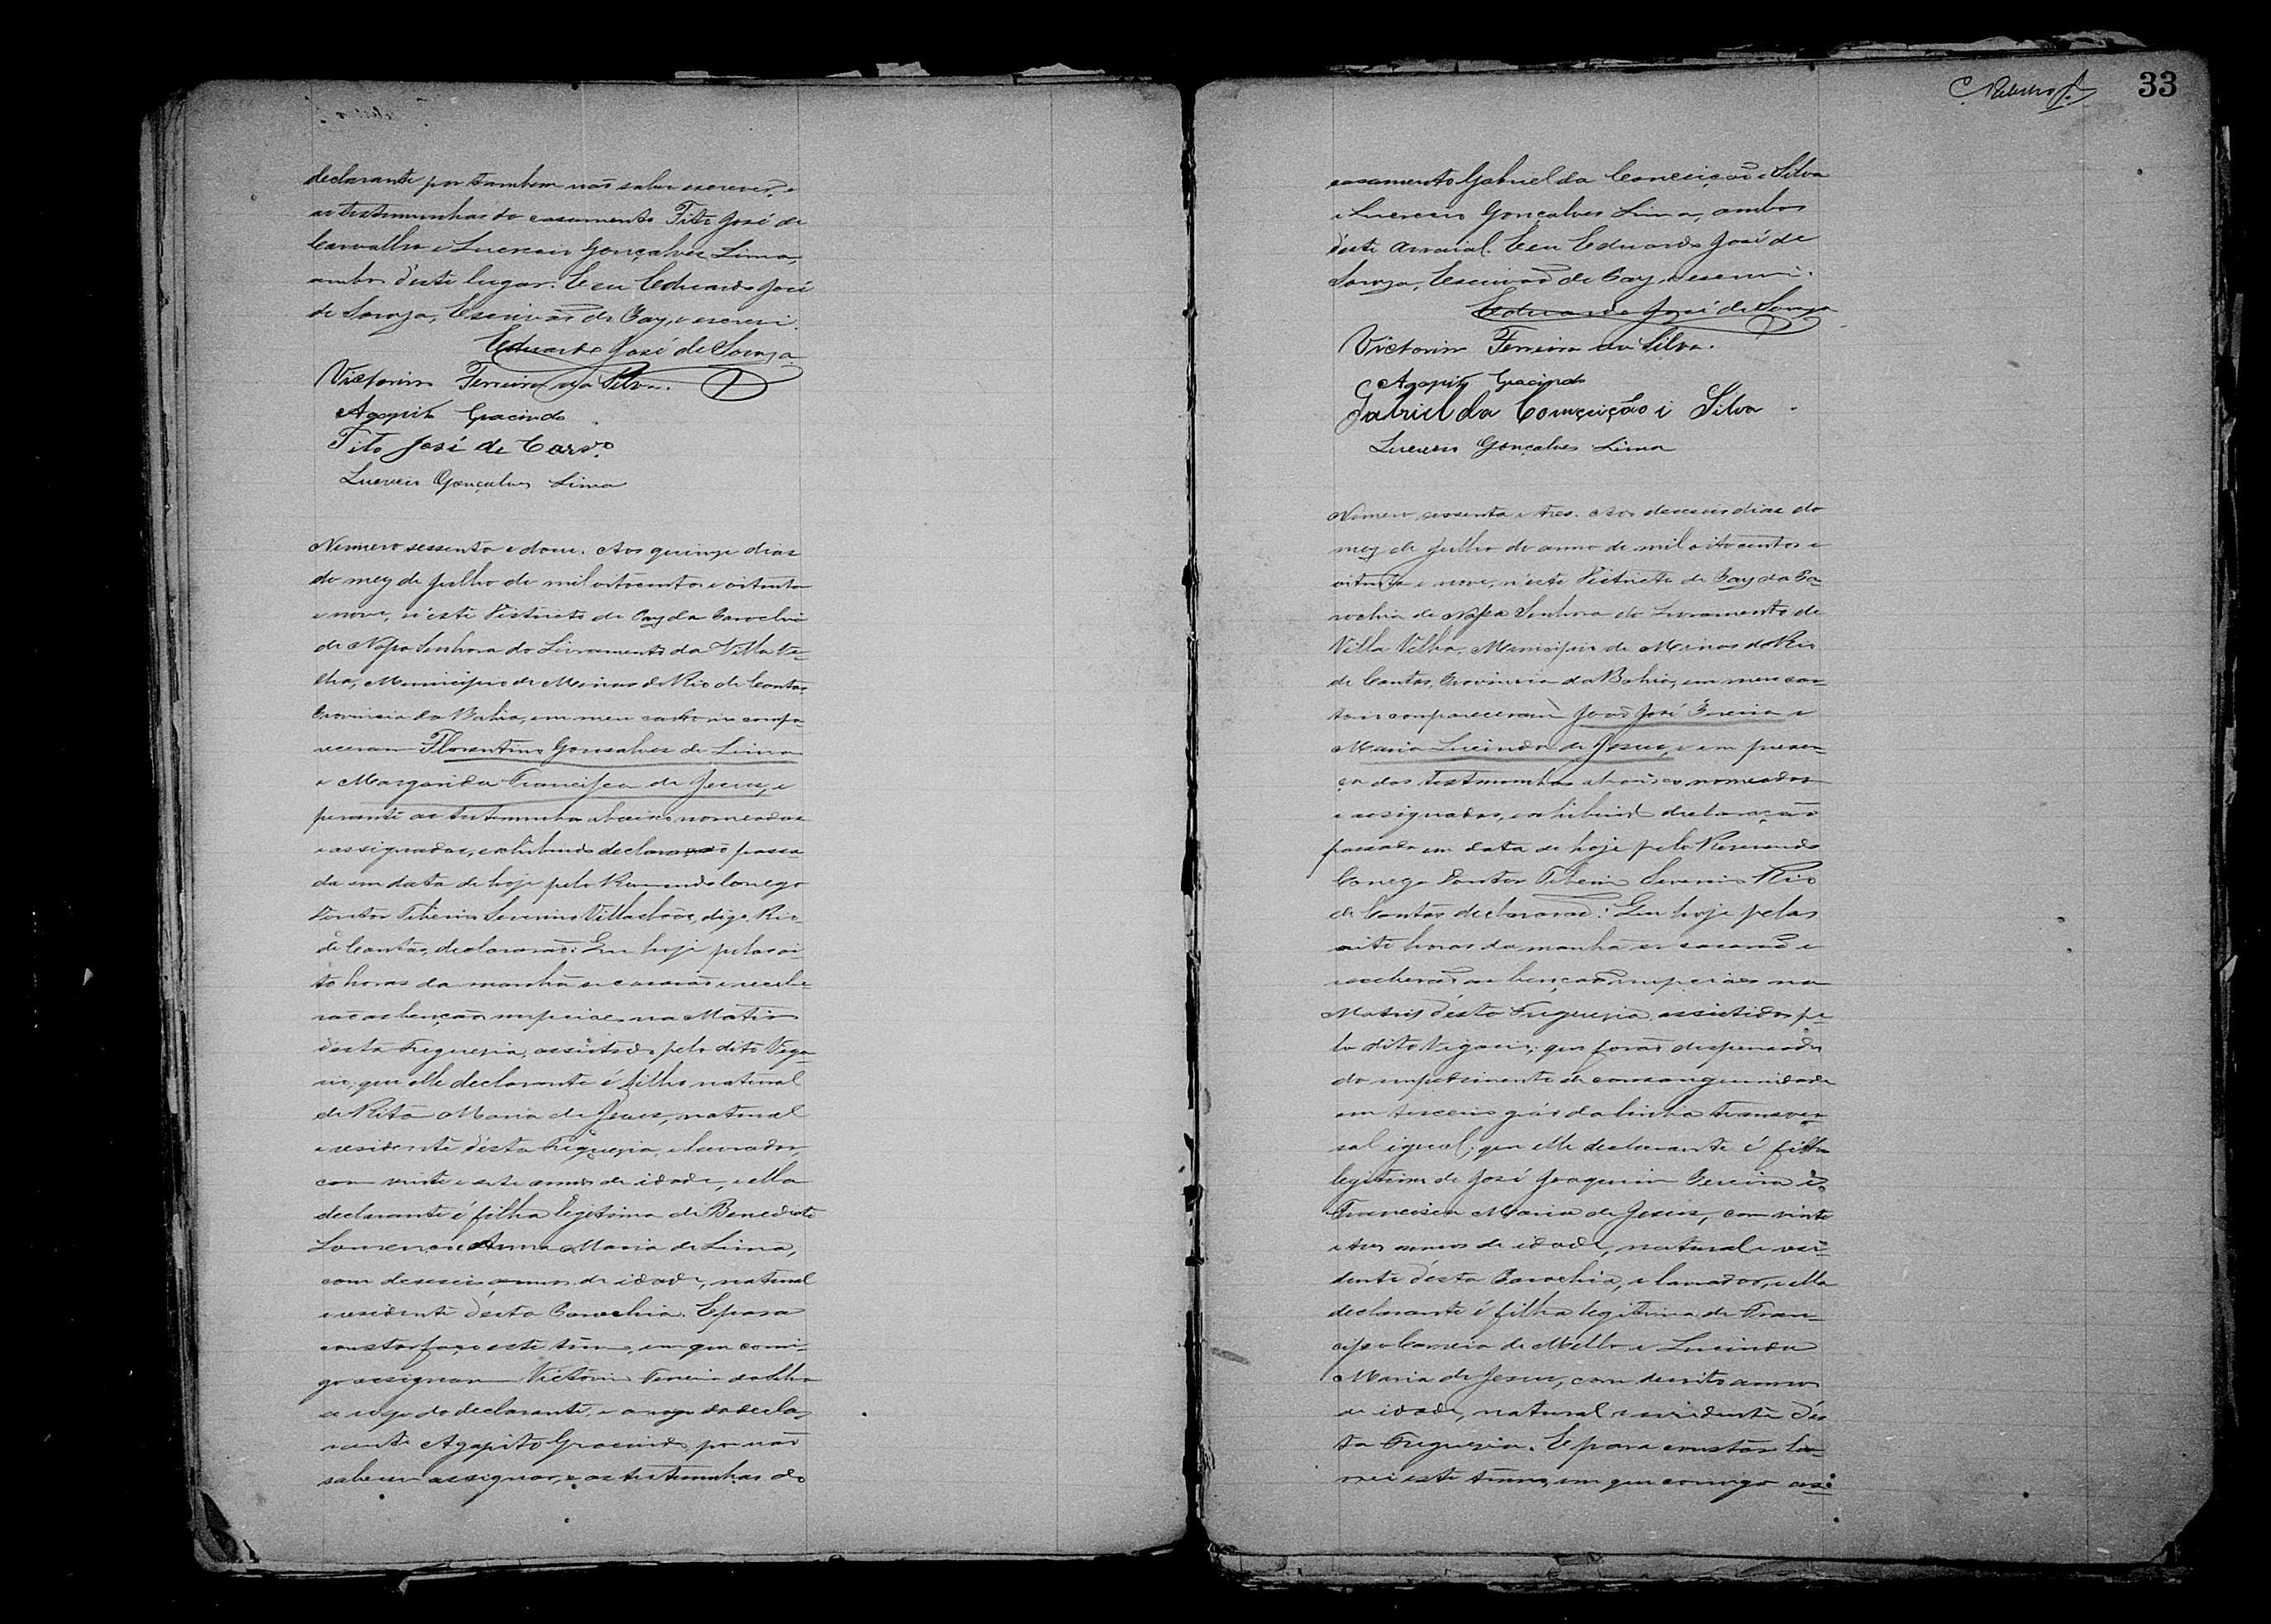 declarante por tambem não saber escrever, e
as testemunhas do casamento Tito José de
Carvalho e Lucrecio Gonçalves Lima,
ambos d'este lugar. E eu Eduardo José
de Souza, Escrivão de Paz, o escrevi.
Eduardo José de Souza
Victorino Ferreira da Silva.
Agapito Gracindo
Tito José de Carv.º
Lucrecio Gonçalves Lima
Numero sessenta e dous. Aos quinze dias
do mez de Julho de mil oitocentos e oitenta
e nove, n'este Districto de Paz da Parochia
de Nossa Senhora do Livramento da Villa Ve-
lha, Municipio de Minas do Rio de Contas,
Provincia da Bahia, em meu cartorio compa-
receram Florentino Gonsalves de Lima
e Margarida Francisca de Jesus, e
perante as testemunhas abaixo nomeadas
e assignadas, exhibindo declaração passa-
da em data de hoje pelo Reverendo Conego
Doutor Tiberio Severino Villasboas, digo, Rio
de Contas, declararão: Que hoje pelas oi-
to horas da manhã se casarão e recebe-
rão as bençãos nupciaes na Matriz
d'esta Freguezia, assistidos pelo dito Viga-
rio; que elle declarante é filho natural
de Rita Maria de Jesus, natural
e residente d'esta Freguezia, e lavrador,
com vinte e sete annos de idade, e ella
declarante é filha legitima de Benedicto
Lourenço e Anna Maria de Lima,
com deseseis annos de idade, natural
e residente d'esta Parochia. E para
constar faço este termo, em que comi-
go assignam Victorino Ferreira da Silva
a rogo do declarante, e a rogo da decla-
rante Agapito Gracindo por não
saberem assignar, e as testemunhas do
C. Ribeiro
33
casamento Gabriel da Conceição e Silva
e Lucrecio Gonçalves Lima, ambos
d'este Arraial. E eu Eduardo José de
Souza, Escrivão de Paz, o escrevi.
Eduardo José de Souza
Victorino Ferreira da Silva.
Agapito Gracindo
Gabriel da Comçeição i Silva
Lucrecio Gonçalves Lima
Numero sessenta e tres. Aos deseseis dias do
mez de Julho do anno de mil oitocentos e
oitenta e nove, n'este Districto de Paz da Pa-
rochia de Nossa Senhora do Livramento de
Villa Velha, Municipio de Minas do Rio
de Contas, Provincia da Bahia, em meu car-
torio compareceram João José Pereira e
Maria Lucinda de Jesus, e em presen-
ça das testemunhas abaixo nomeadas
e assignadas, exhibindo declaração
passada em data de hoje pelo Reverendo
Conego Doutor Tiberio Severino Rio
de Contas declararão: Que hoje pelas
oito horas da manhã se casarão e
receberão as bençãos nupciaes na
Matriz d'esta Freguezia, assistidos pe-
lo dito Vigario; que forão dispensados
do impedimento de consanguinidade
em terceiro gráo da linha transver-
sal igual; que elle declarante é filho
legitimo de José Joaquim Pereira e
Francisca Maria de Jesus, com vinte
e tres annos de idade, natural e resi-
dente d'esta Parochia, e lavrador, e ella
declarante é filha legitima de Fran-
cisco Correia de Mello e Lucinda
Maria de Jesus, com desoito annos
de idade, natural e residente d'es-
ta Freguezia. E para constar la-
vrei este termo, em que comigo as: